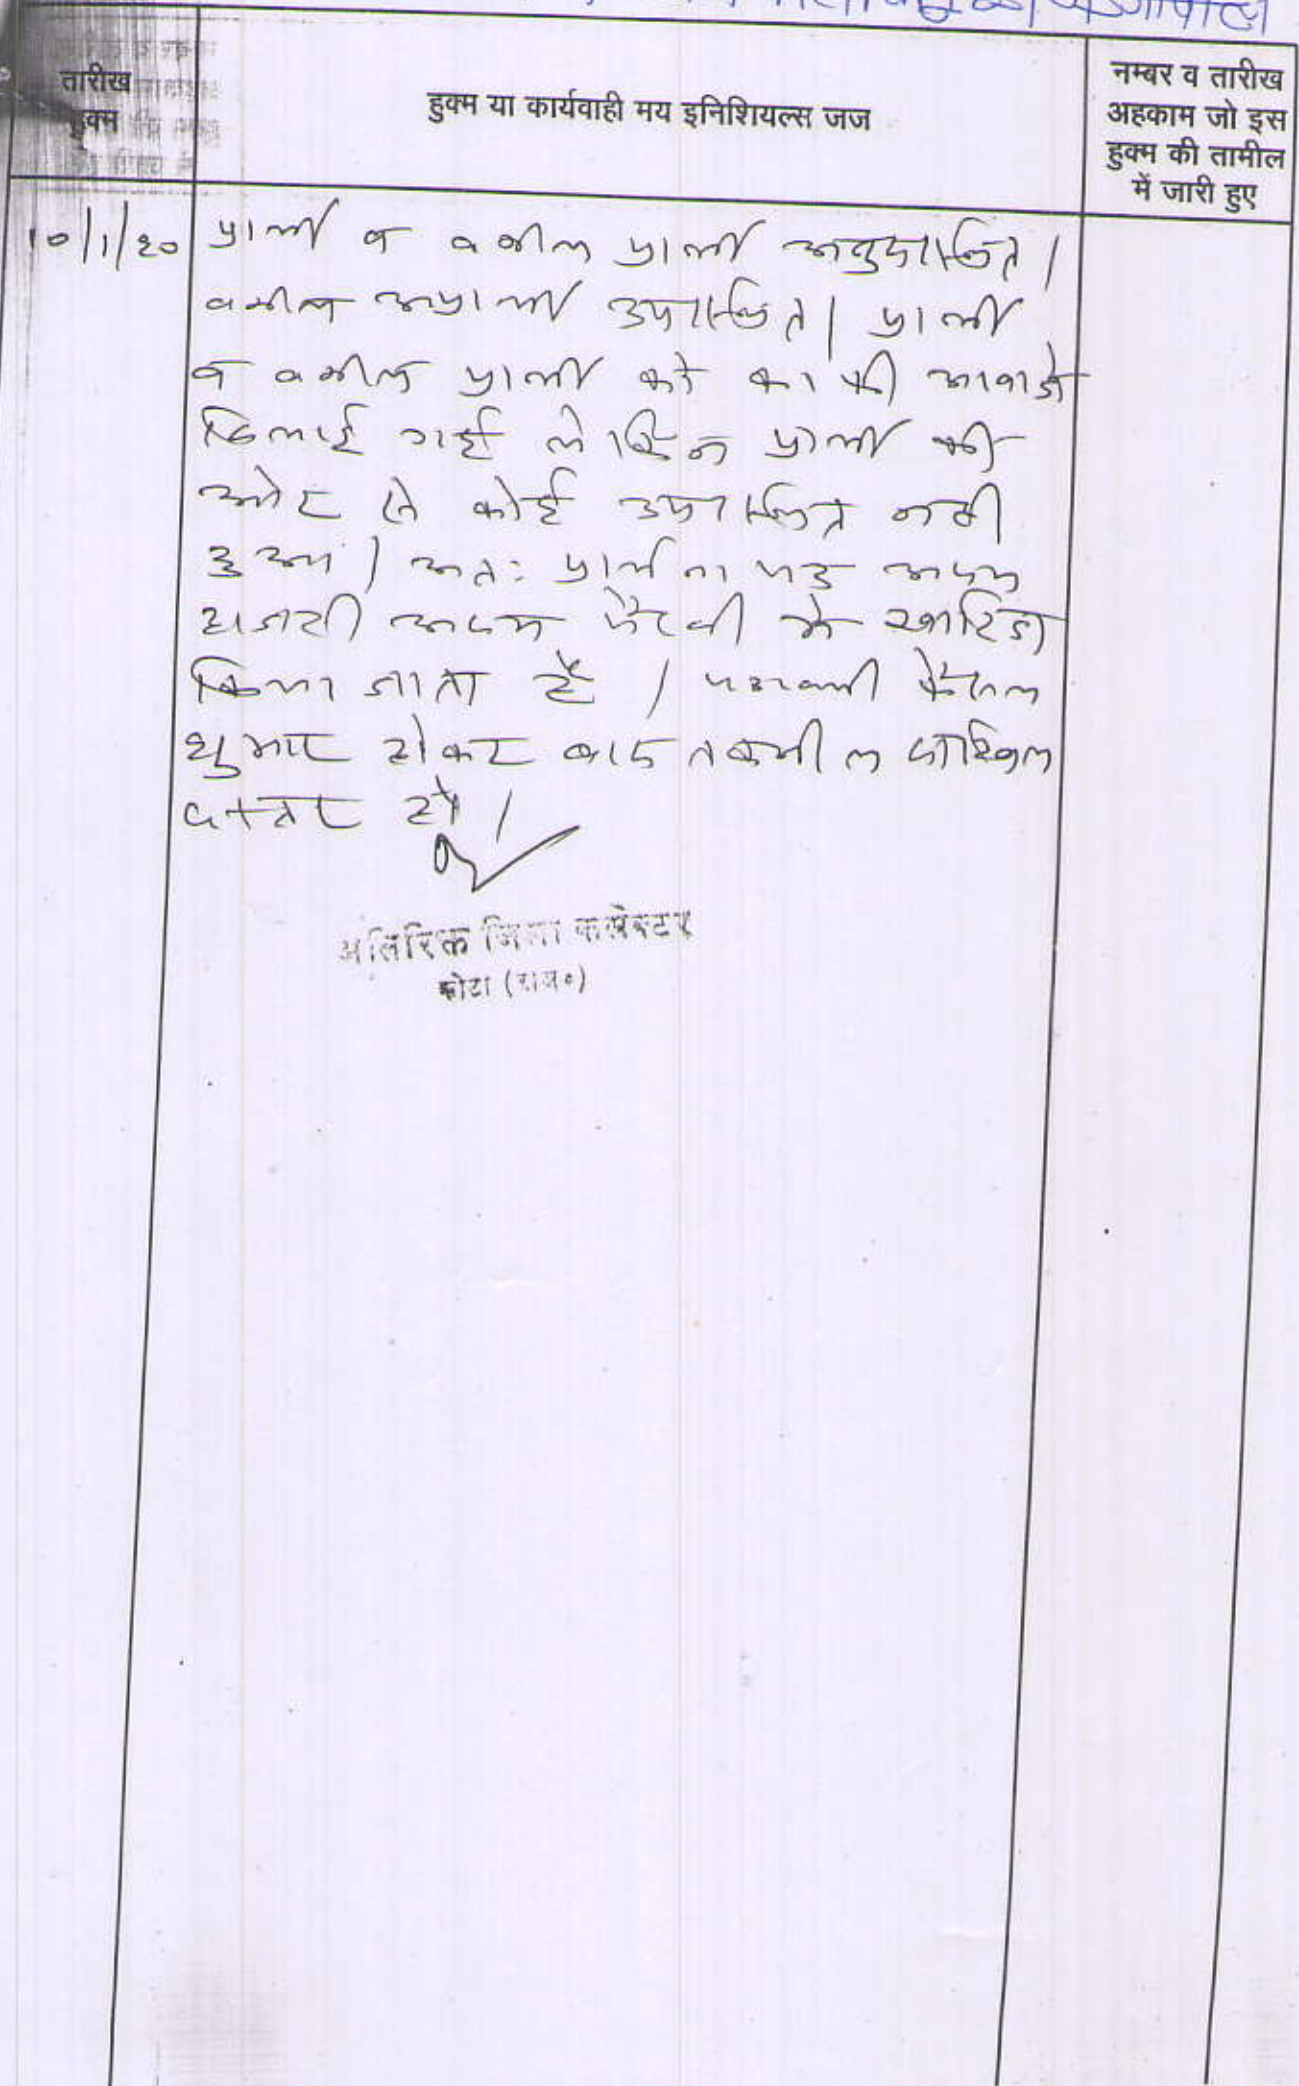 तारीख
हुक्म
हुक्म या कार्यवाही मय इनिशियल्स जज
नम्बर व तारीख
अहकाम जो इस
हुक्म की तामील
में जारी हुए
10/1/20
प्रार्थी व वकील प्रार्थी अनुपस्थित।
वकील अप्रार्थी उपस्थित। प्रार्थी
व वकील प्रार्थी को काफी आवाजे
दिलाई गई लेकिन प्रार्थी की
ओर से कोई उपस्थित नही
हुआ। अतः प्रार्थना पत्र अदम
हाजरी अदम पैरवी मे खारिज
किया जाता है। पत्रावली फैसल
शुमार होकर बाद तकमील दाखिल
दफ्तर हो।
अतिरिक्त जिला कलेक्टर
कोटा (राज०)